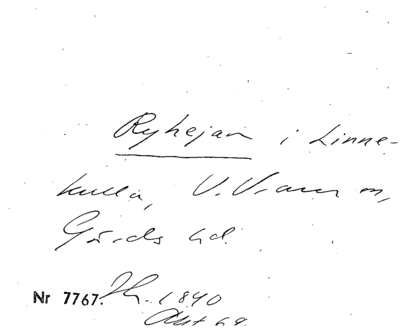 Ryhejan i Linne-
kulla, V. Vram sn,
Gärds hd.
Nr 7767. 1840